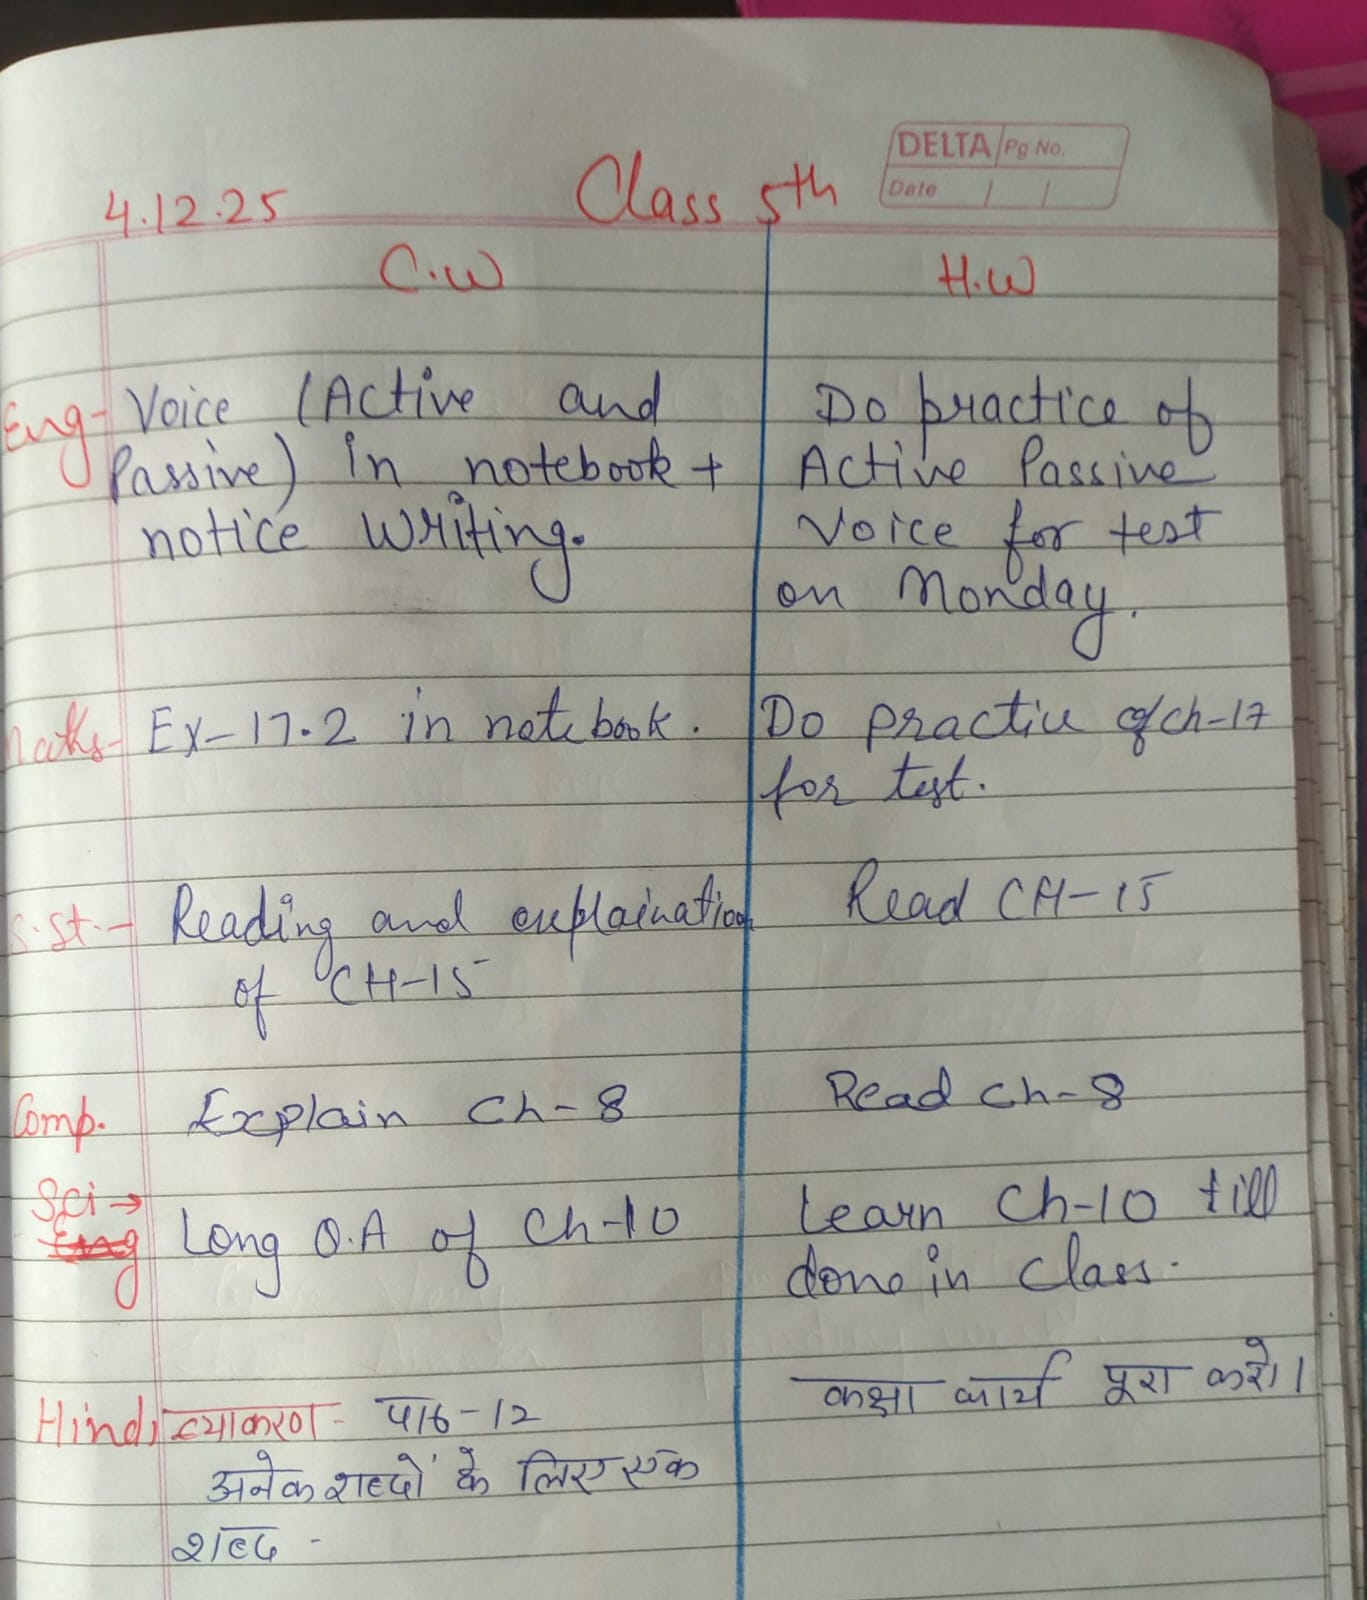 DELTA Pg No.
Date / /
4.12.25 Class 5th
C.W H.W
Eng- Voice (Active and Do practice of
Passive) in notebook + Active Passive
notice writing. Voice for test
on Monday.
Maths- Ex-17.2 in notebook. Do practice of ch-17
for test.
S.st.- Reading and explaination Read CH-15
of CH-15
Comp. Explain Ch-8 Read ch-8
Sci → Long Q.A of Ch-10 Learn Ch-10 till
Eng done in class.
कक्षा कार्य पूरा करो।
Hindi व्याकरण- पाठ-12
अनेक शब्दों के लिए एक
शब्द -